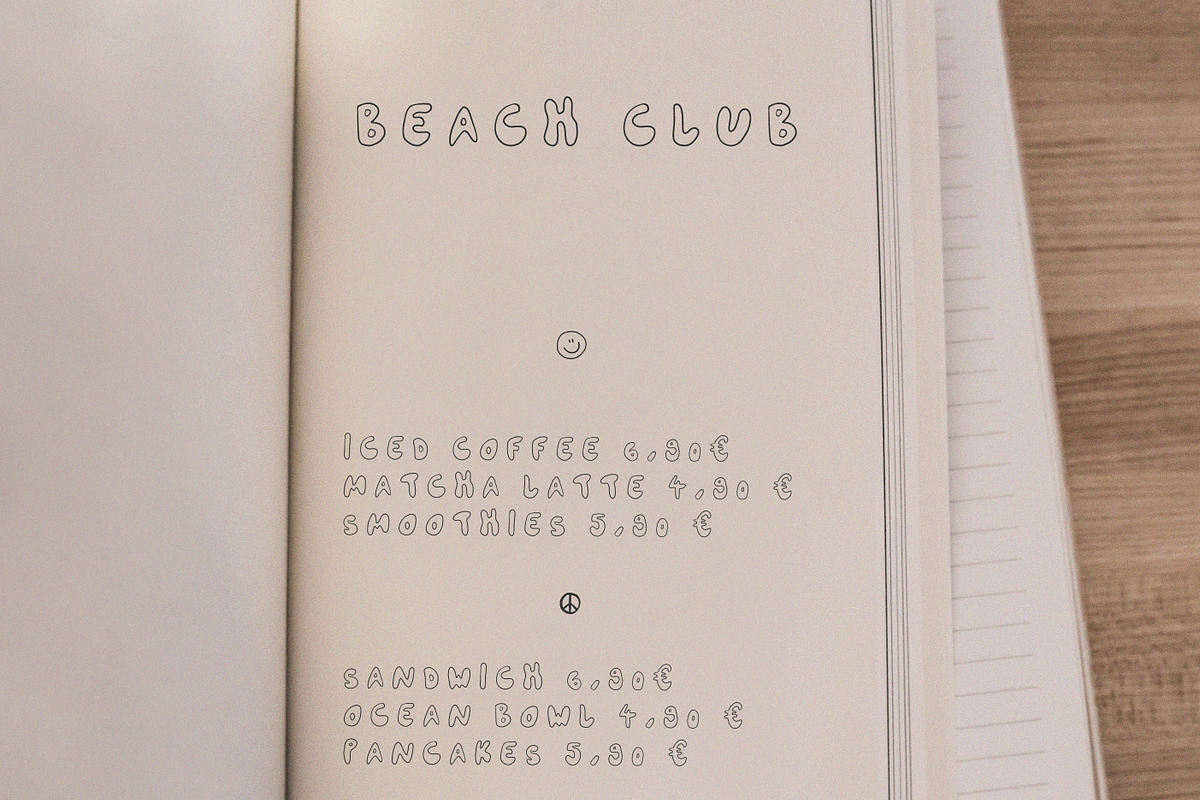 BEACH CLUB
ICED COFFEE 6,90€
MATCHA LATTE 4,90 €
SMOOTHIES 5,90 €
SANDWICH 6,90€
OCEAN BOWL 4,90 €
PANCAKES 5,90 €